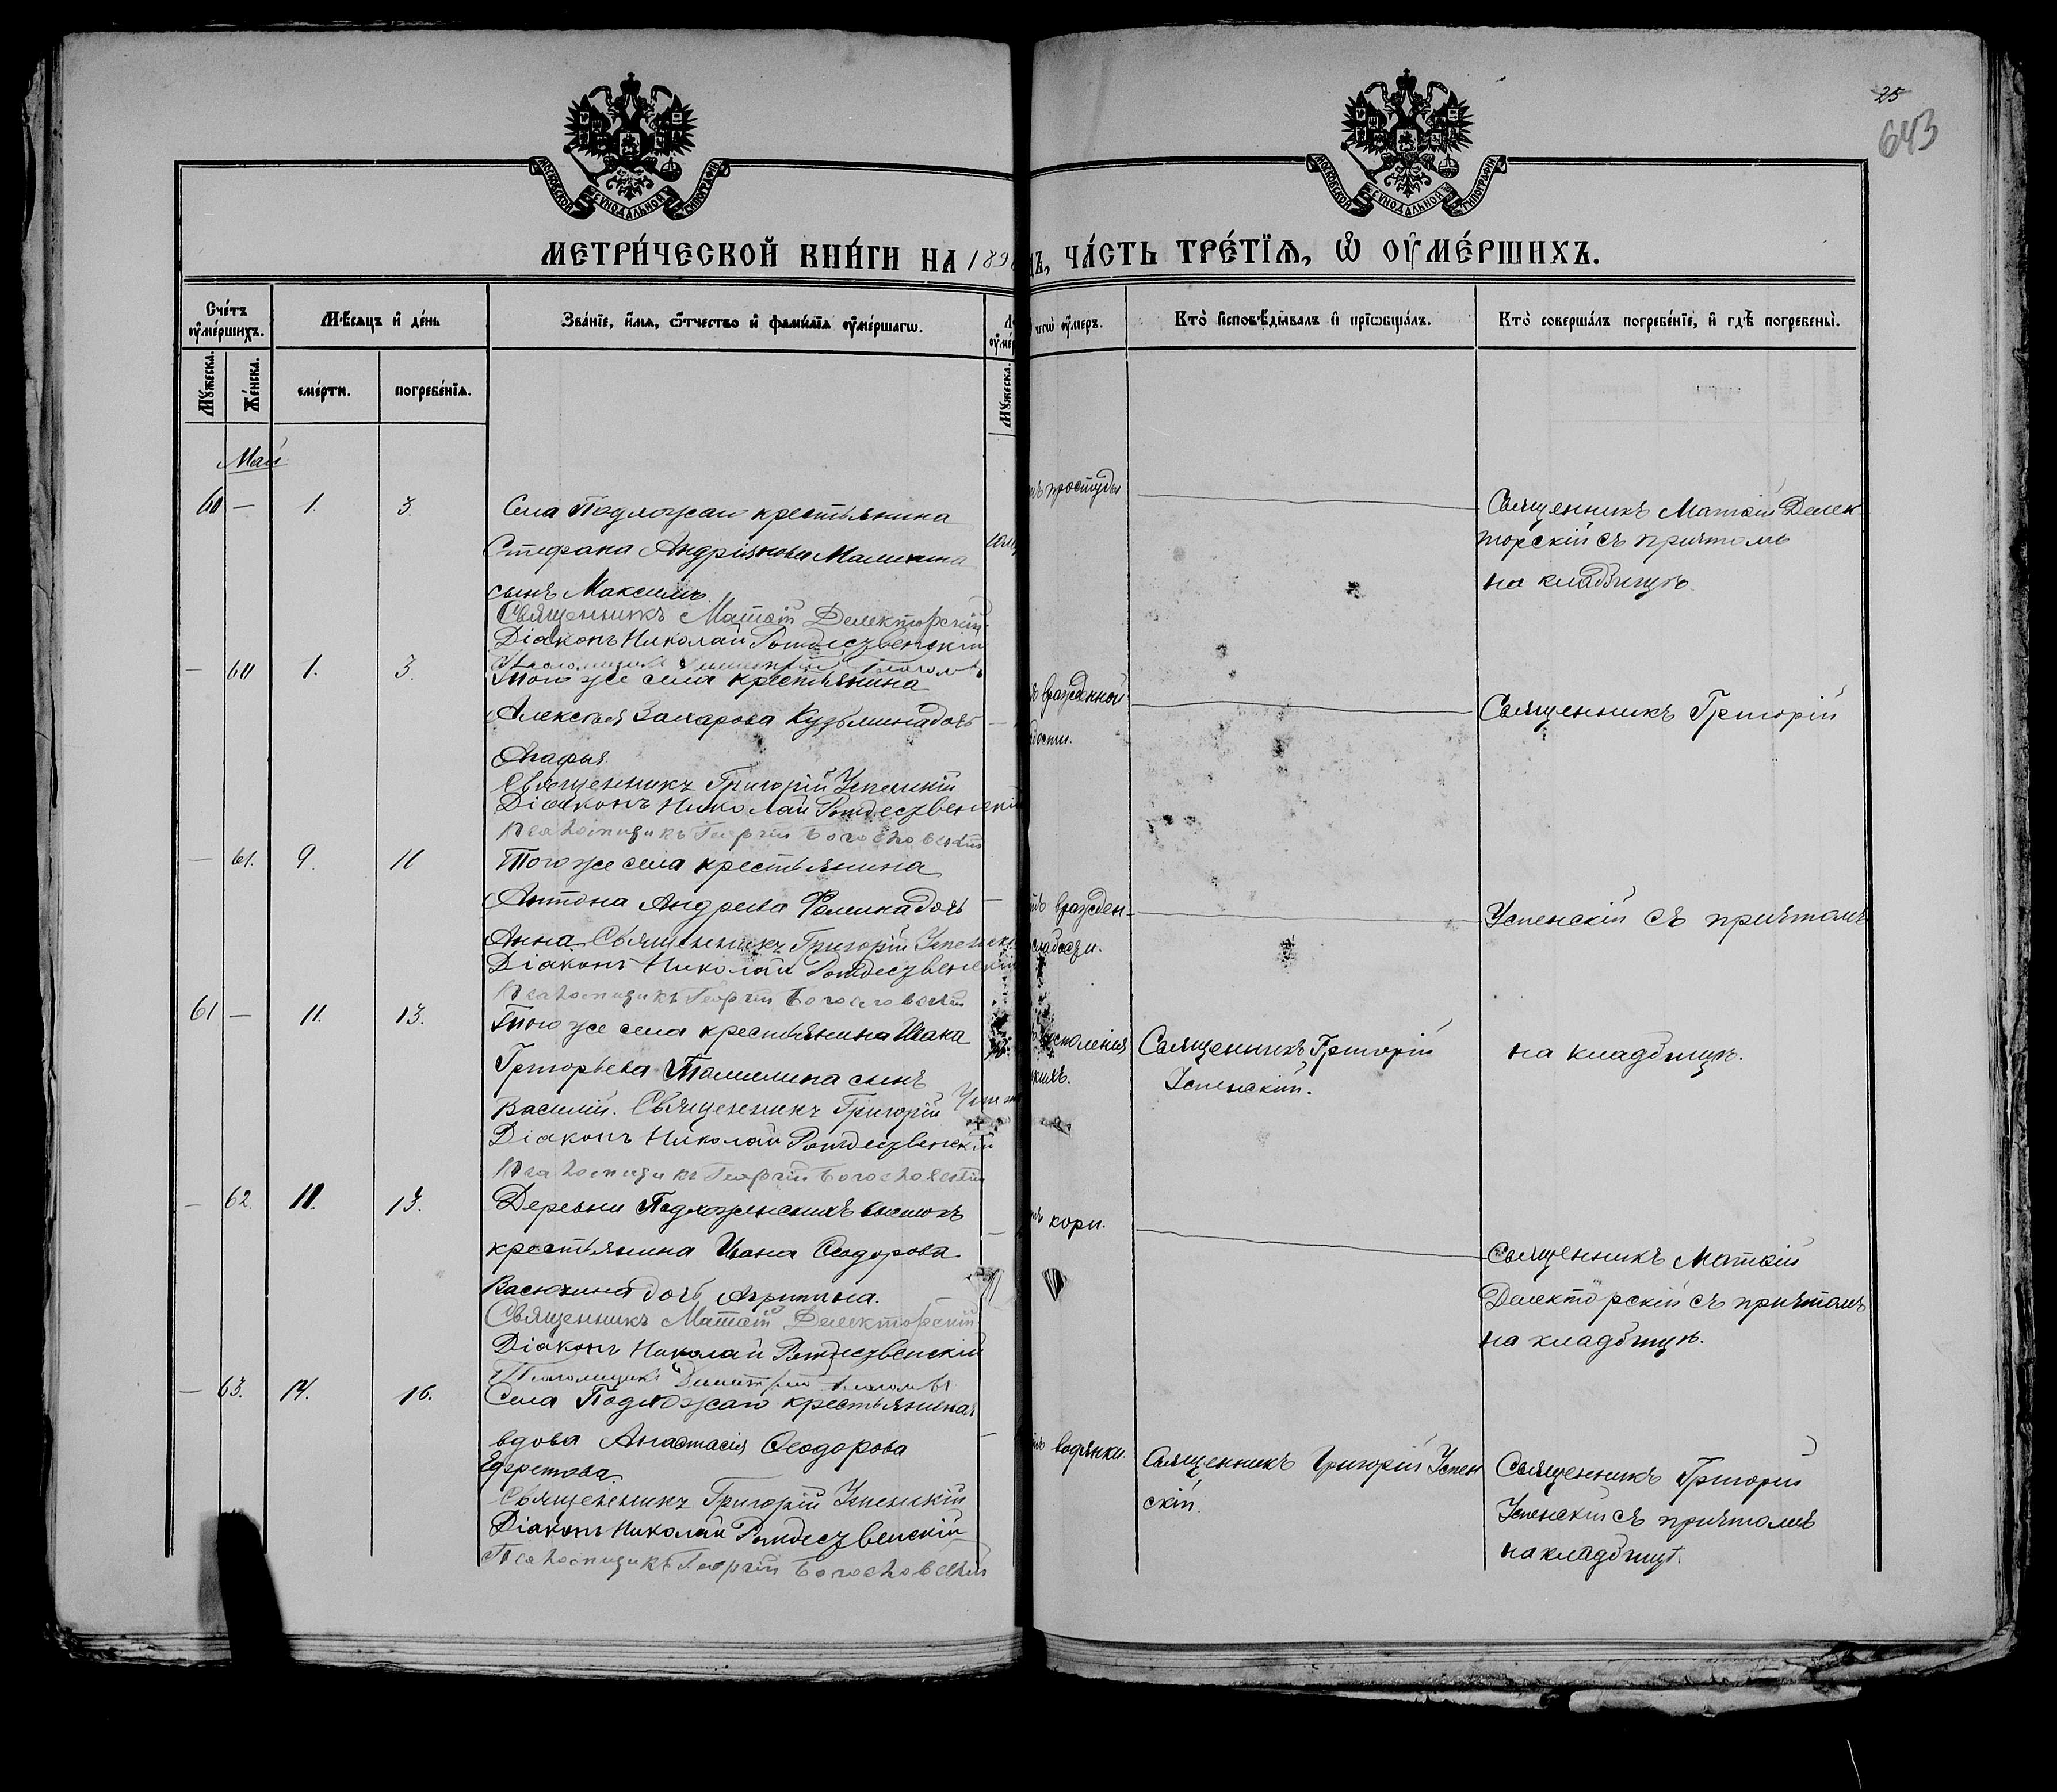 25
643
МОСКОВСКОЙ СУНОДАЛЬНОЙ ТИПОГРАФІИ
МОСКОВСКОЙ СУНОДАЛЬНОЙ ТИПОГРАФІИ
МЕТРИ́ЧЕСКОЙ КНИ́ГИ НА 189
ЧА́СТЬ ТРЕ́ТЇѦ, Ѡ҆ ОУ҆МЕ́РШИХЪ.
Сче́тъ оу҆ме́ршихъ.
Мѣ́сяцъ и҆ де́нь
Зва́нїе, и҆́мя, ѻ҆́тчество и҆ фами́лїя оу҆ме́ршагѡ.
чегѡ̀ оу҆́меръ.
Кто̀ и҆сповѣ́дывалъ и҆ прїѡбща́лъ.
Кто̀ соверша́лъ погребе́нїе, и҆ гдѣ̀ погребены̀.
Мꙋ́жеска.
Же́нска.
сме́рти.
погребе́нїя.
Мꙋ́жеска.
Май
60 — 1. 3.
Села Подлѣжаго крестьянина
Стефана Андріянова Малинина
сынъ Максимъ.
Священникъ Матѳій Делекторскій
Діаконъ Николай Рождественскій
простуды
Священникъ Матѳій Делек
торскій съ причтомъ
на кладбищѣ.
— 60 1. 3.
Того же села крестьянина
Алексѣя Захарова Кузьмина дочь
Агафья.
Священникъ Григорій Успенскій
Діаконъ Николай Рождественскій
Псаломщикъ Георгій Богословскій
врожденной
Священникъ Григорій
— 61. 9. 11
Того же села крестьянина
Антона Андреева Фомина дочь
Анна. Священникъ Григорій
Діаконъ Николай Рождественскій
Псаломщикъ Георгій Богословскій
врожден
слабости.
Успенскій съ причтомъ
61 — 11. 13.
Того же села крестьянина Исака
Григорьева Томилина сынъ
Василій. Священникъ Григорій
Діаконъ Николай Рождественскій
Псаломщикъ Георгій Богословскій
Священникъ Григорій
Успенскій.
на кладбищѣ.
— 62. 11. 13.
Деревни Подлѣженскихъ высѣлокъ
крестьянина Ивана Ѳеодорова
Васюхина дочь Агрипина.
Священникъ Матѳій Делекторскій
Діаконъ Николай Рождественскій
кори.
Священникъ Матѳій
Делекторскій съ причтомъ
на кладбищѣ.
— 63. 14. 16.
Села Подлѣжаго крестьянская
вдова Анастасія Ѳеодорова
Ефремова.
Священникъ Григорій Успенскій
Діаконъ Николай Рождественскій
Псаломщикъ Георгій Богословскій
водянки.
Священникъ Григорій Успен
скій.
Священникъ Григорій
Успенскій съ причтомъ
на кладбищѣ.